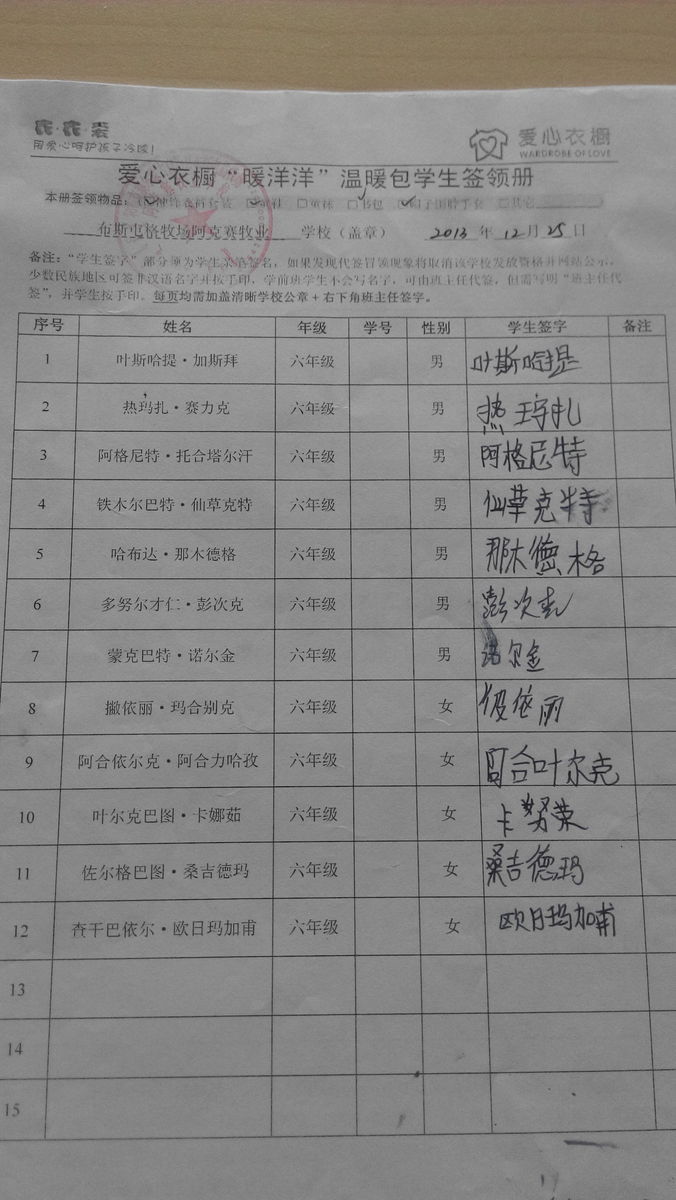 衣·衣·裳
用爱心呵护孩子冷暖!
爱心衣橱
WARDROBE OF LOVE
爱心衣橱“暖洋洋”温暖包学生签领册
本册签领物品： 童袜 书包 其它
布斯屯格牧场阿克赛牧业 学校（盖章） 2013 年 12 月 25 日
备注：“学生签字”部分须为学生亲笔签名，如果发现代签冒领现象将取消该学校发放资格并网站公示，
少数民族地区可签非汉语名字并按手印，学前班学生不会写名字，可由班主任代签，但需写明“班主任代
签”，并学生按手印。每页均需加盖清晰学校公章+右下角班主任签字。
序号 姓名 年级 学号 性别 学生签字 备注
1 叶斯哈提·加斯拜 六年级 男 叶斯哈提
2 热玛扎·赛力克 六年级 男 热玛扎
3 阿格尼特·托合塔尔汗 六年级 男 阿格尼特
4 铁木尔巴特·仙草克特 六年级 男 仙草克特
5 哈布达·那木德格 六年级 男 那木德格
6 多努尔才仁·彭次克 六年级 男 彭次克
7 蒙克巴特·诺尔金 六年级 男 诺尔金
8 撇依丽·玛合别克 六年级 女 依丽
9 阿合依尔克·阿合力哈孜 六年级 女 阿合叶尔克
10 叶尔克巴图·卡娜茹 六年级 女 卡努荣
11 佐尔格巴图·桑吉德玛 六年级 女 桑吉德玛
12 查干巴依尔·欧日玛加甫 六年级 女 欧日玛加甫
13
14
15